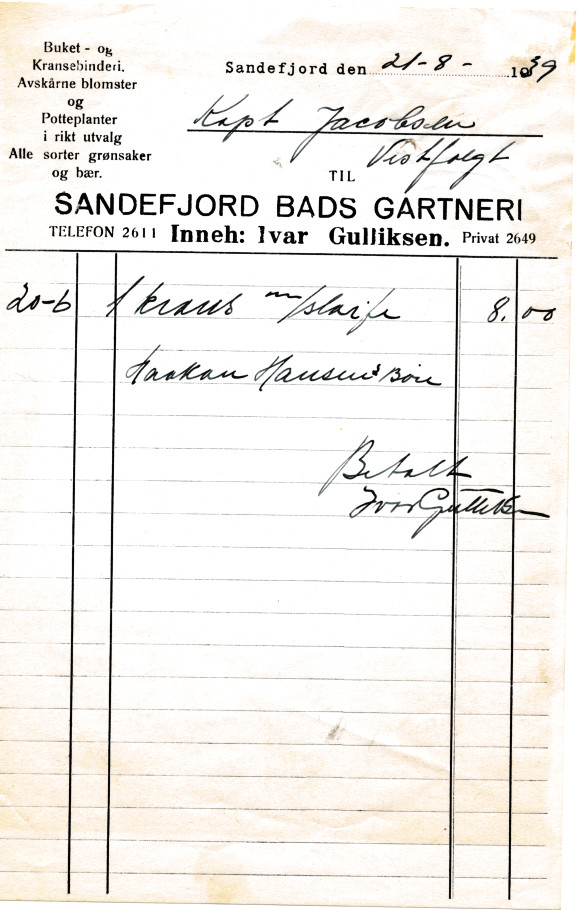 Buket - og
Kransebinderi.
Avskårne blomster
og
Potteplanter
i rikt utvalg
Alle sorter grønsaker
og bær.
Sandefjord den 21-8- 1939
Kapt Jacobsen
Vestfolgt
TIL
SANDEFJORD BADS GARTNERI
TELEFON 2611 Inneh: Ivar Gulliksen. Privat 2649
20-6 1 krans m/sløife 8.00
Haakon Hansens Bøn
Betalt
Ivar Gulliksen